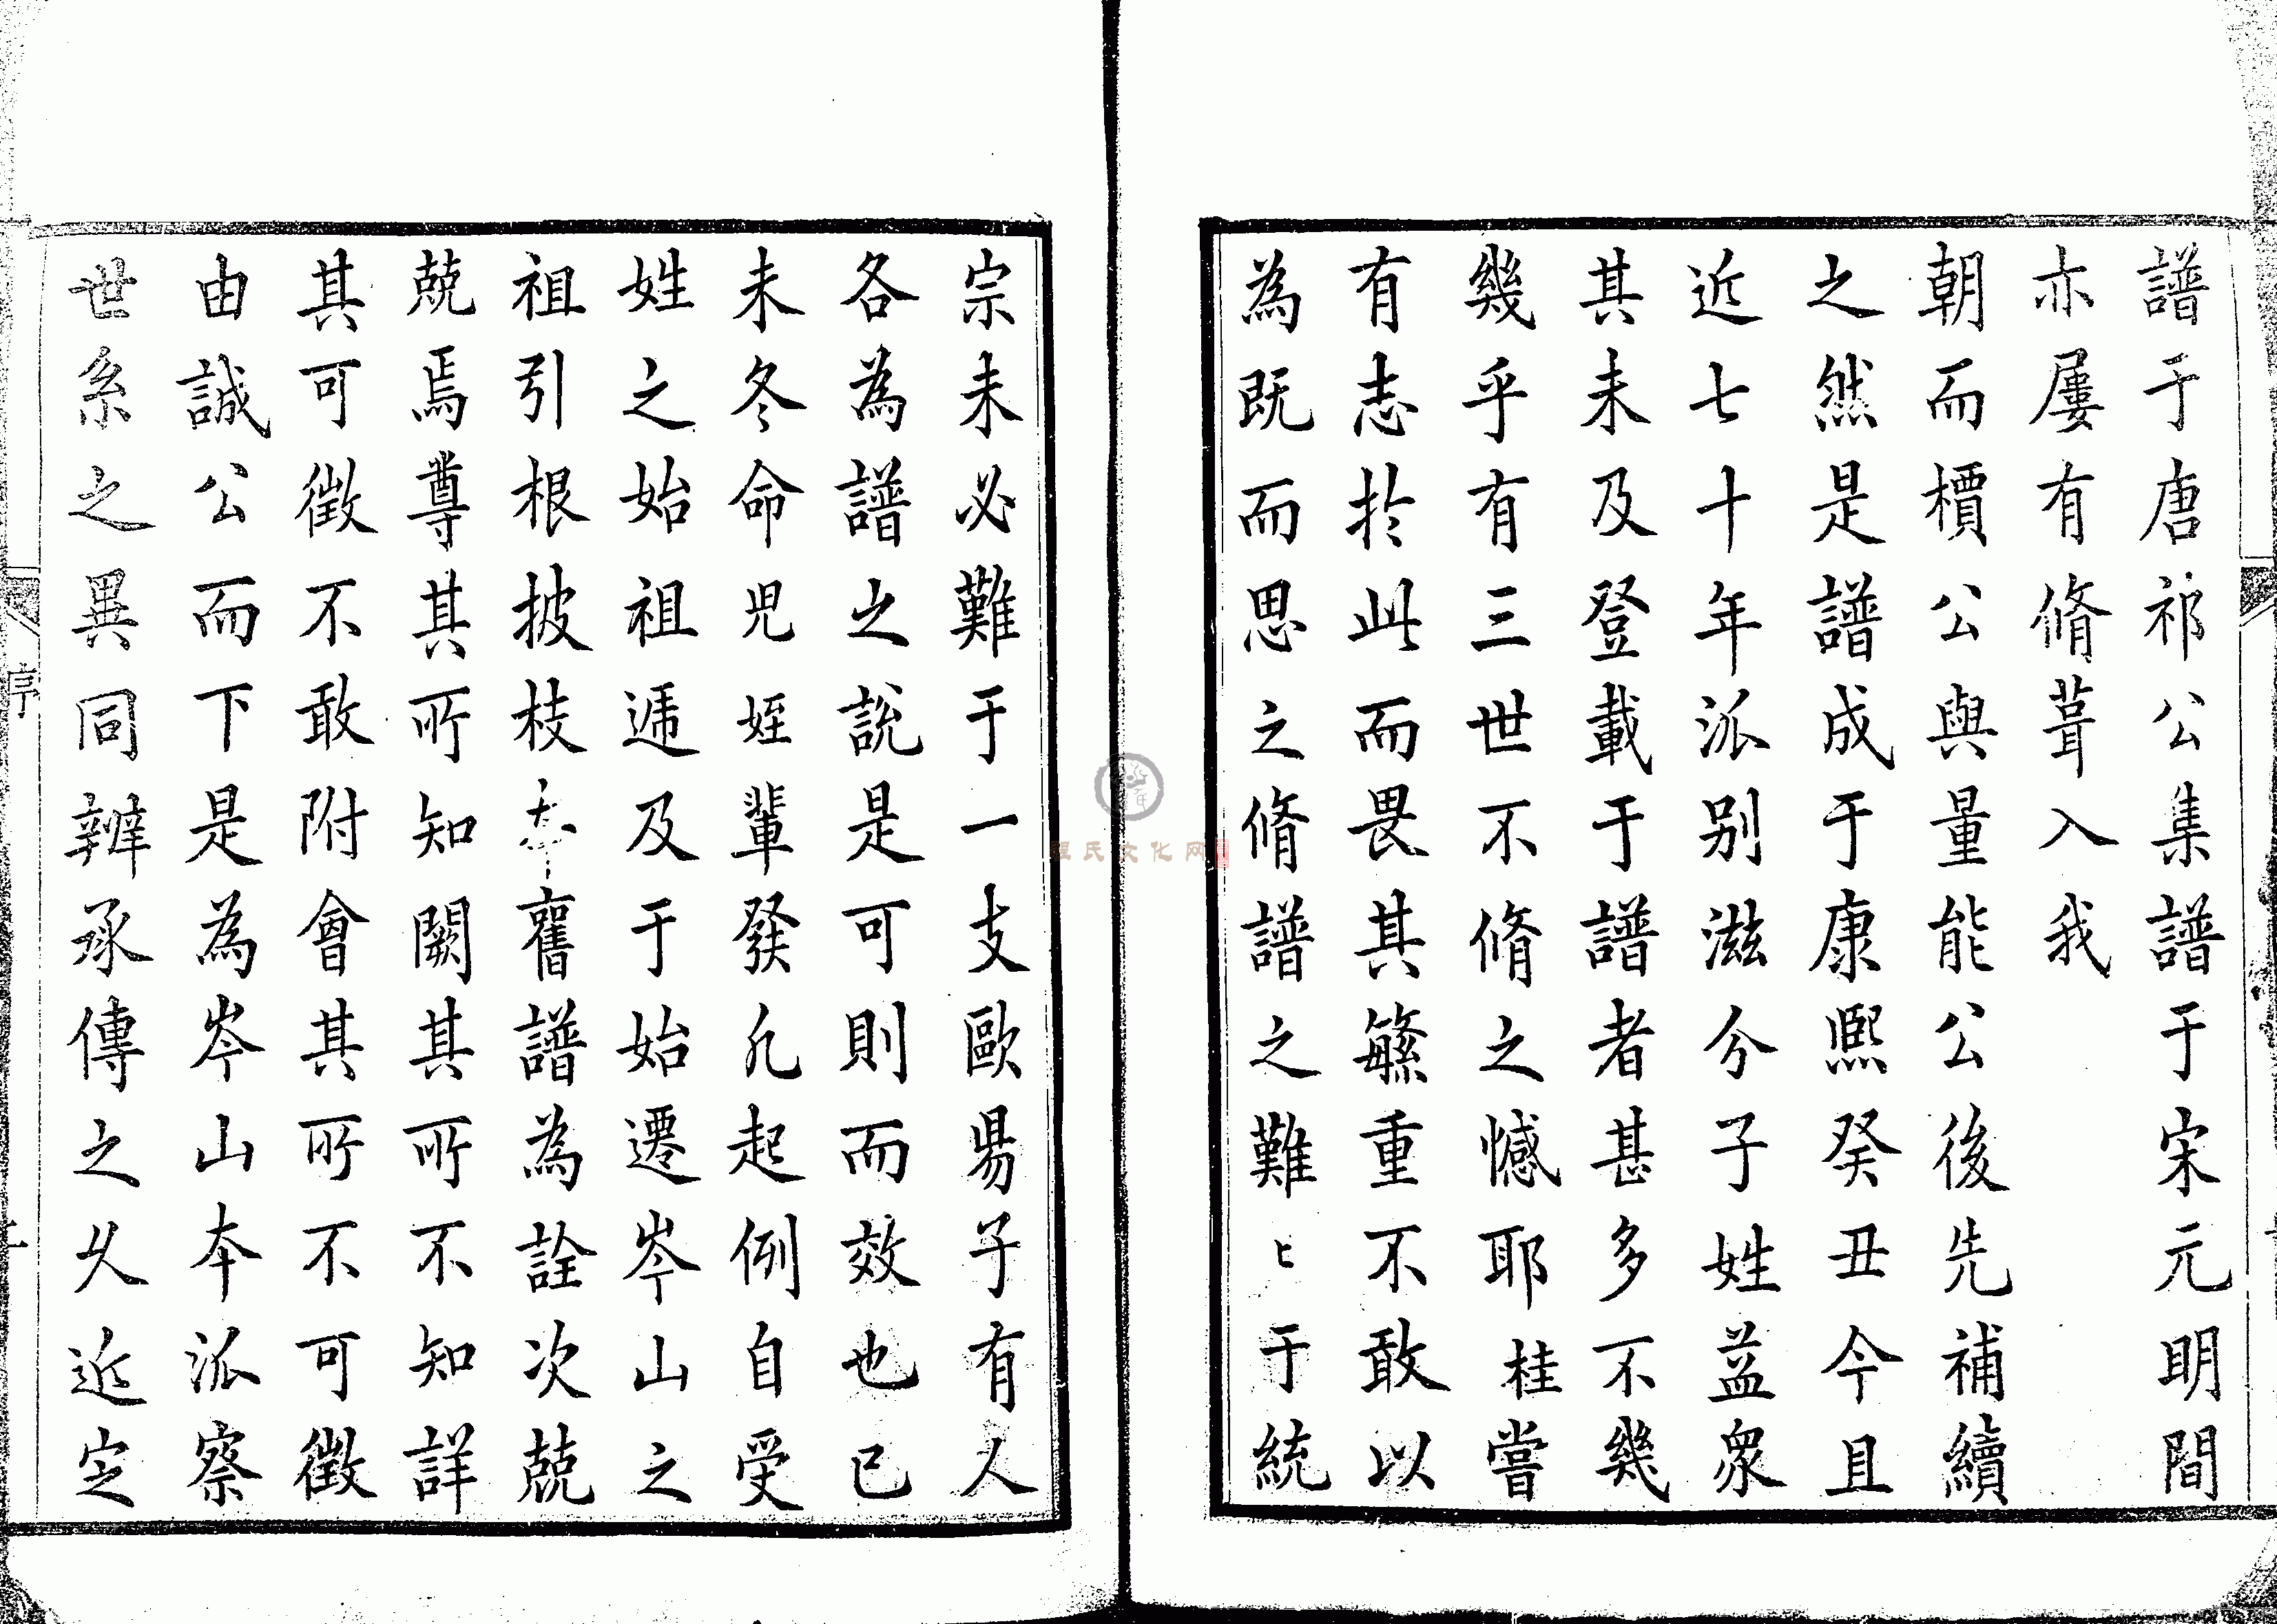 譜于唐祁公集譜于宋元明間
亦屢有脩葺入我
朝而檟公與量能公後先補續
之然是譜成于康熈癸丑今且
近七十年派别滋兮子姓益衆
其未及登載于譜者甚多不幾
幾乎有三世不脩之憾耶桂嘗
有志扵此而畏其繁重不敢以
為既而思之脩譜之難〻于統
宗未必難于一支歐昜子有人
各為譜之說是可則而效也已
未冬命児姪輩發凢起例自受
姓之始祖遞及于始遷岑山之
祖引根披枝本舊譜為詮次兢
兢焉尊其所知闕其所不知詳
其可徵不敢附會其所不可徵
由誠公而下是為岑山本派察
世系之異同辨承傳之乆近定
序
程氏文化网